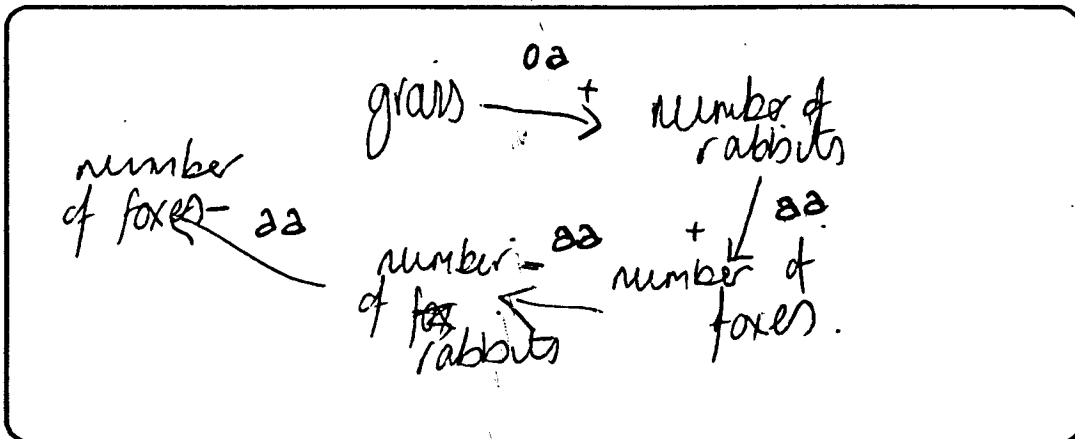 oa
grass +
number of
rabbits
aa
+
number of
foxes.
aa
number -
of rabbits
aa
number
of foxes -